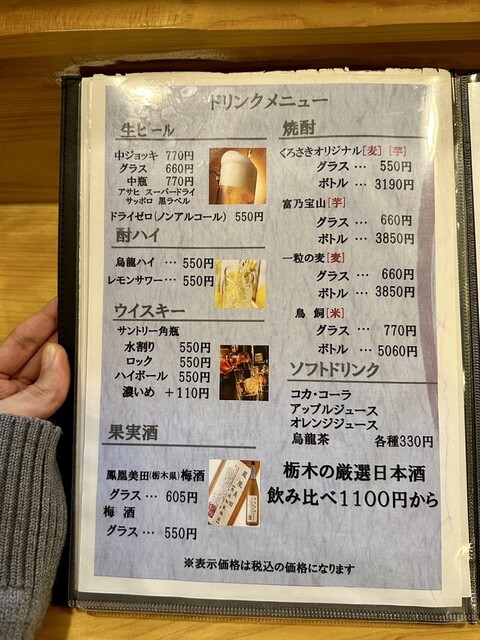 ドリンクメニュー
生ビール
中ジョッキ 770円
グラス 660円
中瓶 770円
アサヒ スーパードライ
サッポロ 黒ラベル
ドライゼロ(ノンアルコール) 550円
酎ハイ
烏龍ハイ … 550円
レモンサワー… 550円
ウイスキー
サントリー角瓶
水割り 550円
ロック 550円
ハイボール 550円
濃いめ +110円
果実酒
鳳凰美田(栃木県)梅酒
グラス … 605円
梅 酒
グラス … 550円
焼酎
くろさきオリジナル[麦] [芋]
グラス … 550円
ボトル … 3190円
富乃宝山[芋]
グラス … 660円
ボトル … 3850円
一粒の麦[麦]
グラス … 660円
ボトル … 3850円
鳥 飼[米]
グラス … 770円
ボトル … 5060円
ソフトドリンク
コカ・コーラ
アップルジュース
オレンジジュース
烏龍茶 各種330円
栃木の厳選日本酒
飲み比べ1100円から
※表示価格は税込の価格になります